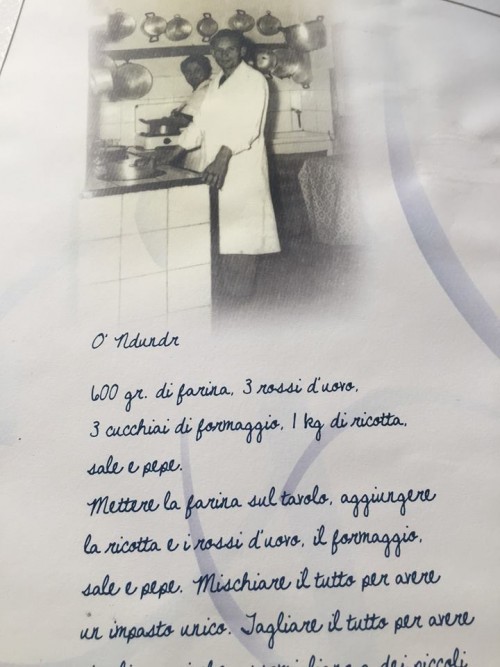 O' Ndundr
600 gr. di farina, 3 rossi d'uovo,
3 cucchiai di formaggio, 1 kg di ricotta,
sale e pepe.
Mettere la farina sul tavolo, aggiungere
la ricotta e i rossi d'uovo, il formaggio,
sale e pepe. Mischiare il tutto per avere
un impasto unico. Tagliare il tutto per avere
dei piccoli